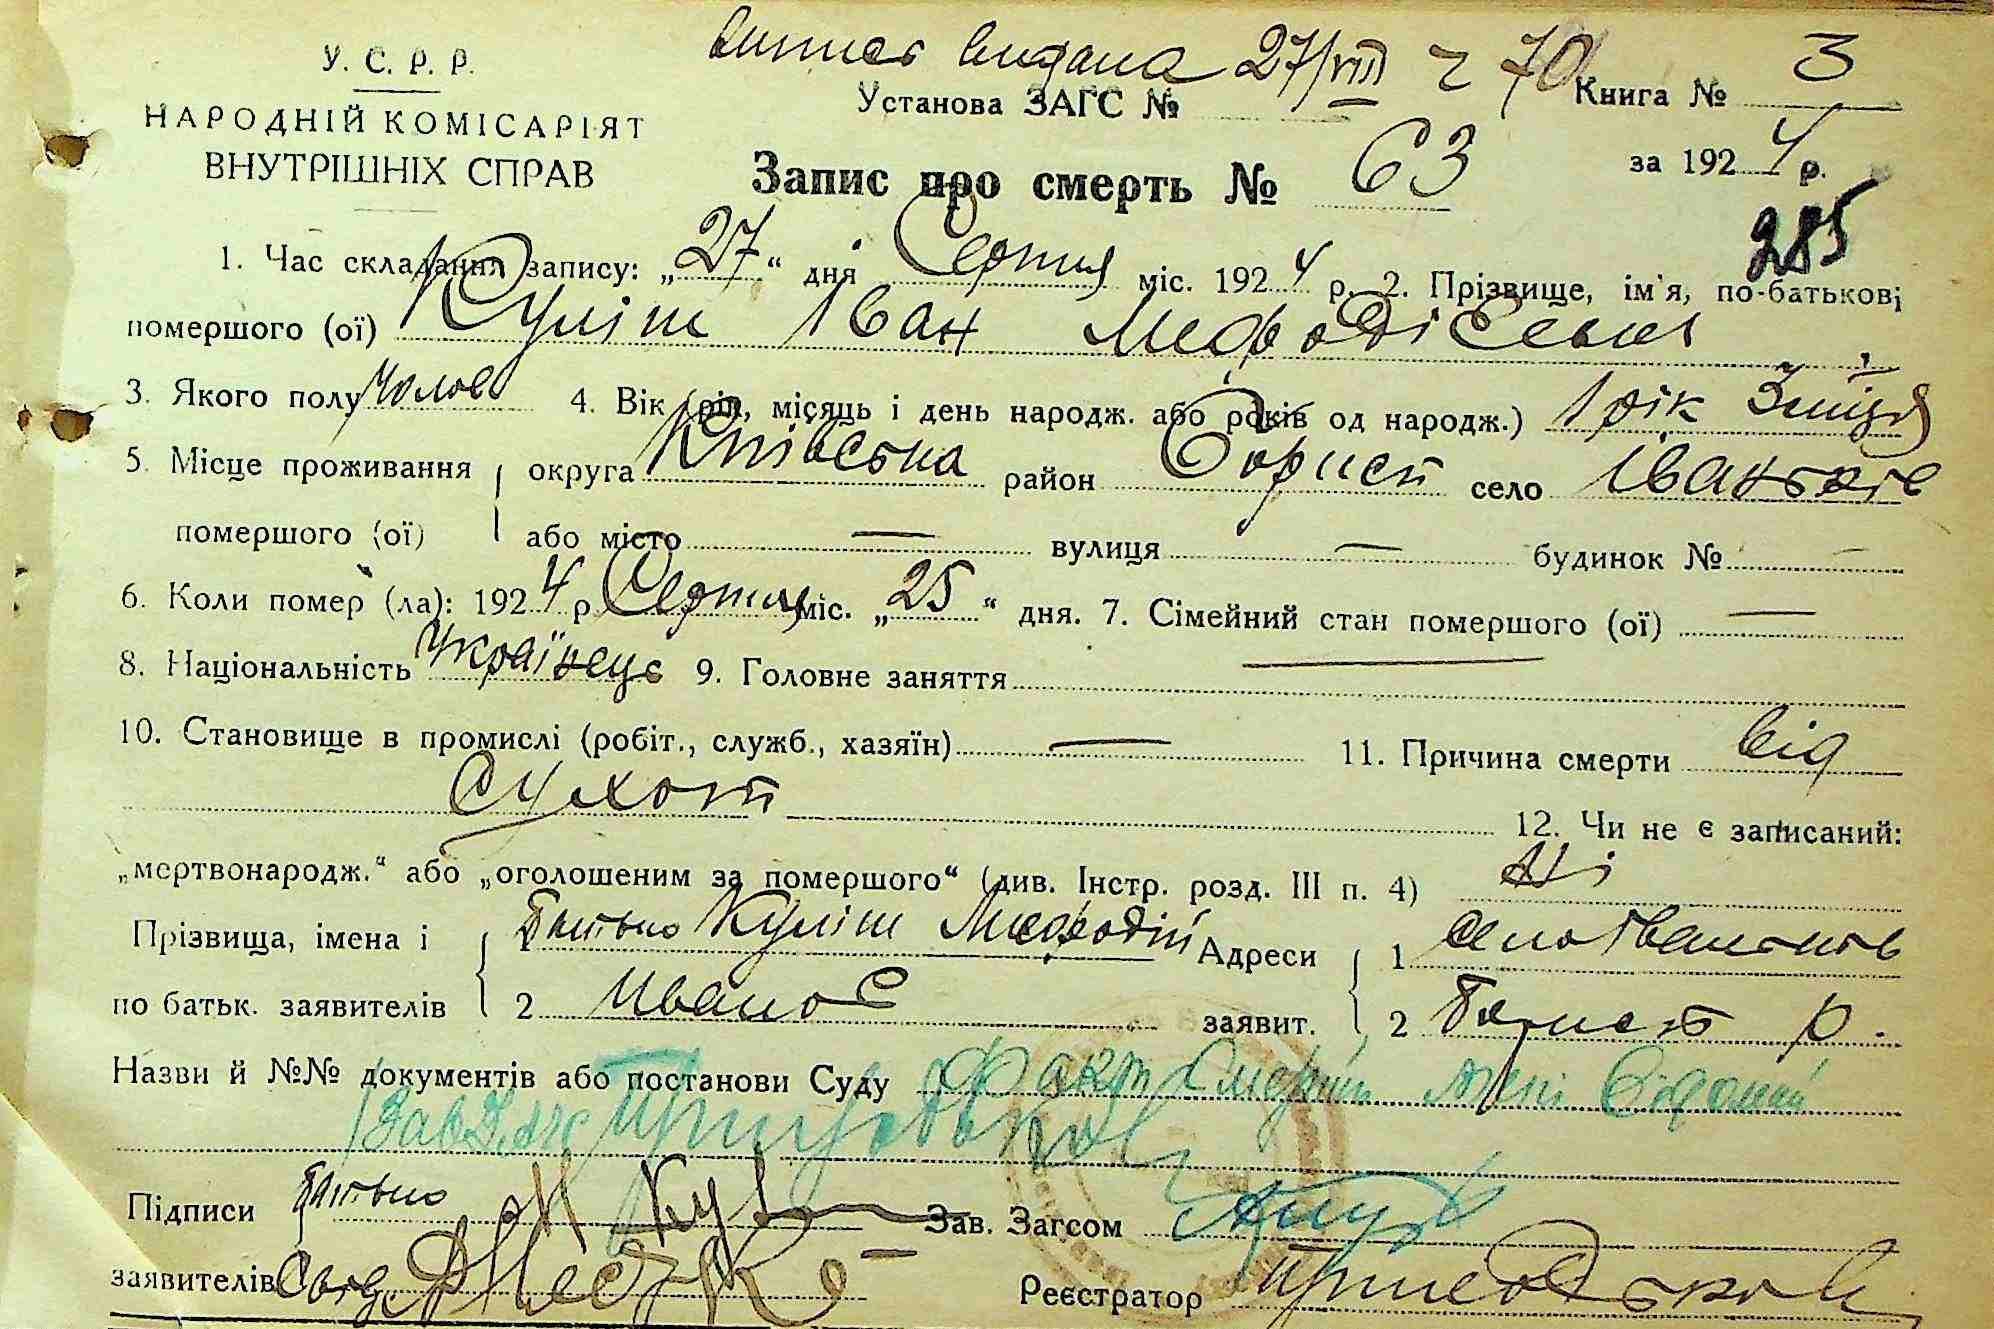 У. С. Р. Р.
НАРОДНІЙ КОМІСАРІЯТ
ВНУТРІШНІХ СПРАВ
видана 27/VIII 70
Установа ЗАГС №
Книга № 3
Запис про смерть № 63
за 1924 р.
285
1. Час складання запису: „27“ дня Серпня міс. 1924 р. 2. Прізвище, ім'я, по-батькові
помершого (ої) Куліш Іван Мефодієвич
3. Якого полу Чолов 4. Вік (рік, місяць і день народж. або років од народж.) 1 рік 3 місяця
5. Місце проживання округа Київська район Борисп село Іваньків
помершого (ої) або місто — вулиця — будинок № —
6. Коли помер (ла): 1924 р Серпня міс. „25“ дня. 7. Сімейний стан помершого (ої) —
8. Національність Українець 9. Головне заняття —
10. Становище в промислі (робіт., служб., хазяїн) — 11. Причина смерти від
сухот
12. Чи не є записаний:
„мертвонародж.“ або „оголошеним за помершого“ (див. Інстр. розд. III п. 4) Ні
Прізвища, імена і 1 Батько Куліш Мефодій Адреси 1 село Іваньків
по батьк. заявителів 2 Иванов заявит. 2 Борисп р.
Назви й №№ документів або постанови Суду Факт Смерти мені відомий
Підписи Батько Зав. Загсом
заявителів Реєстратор